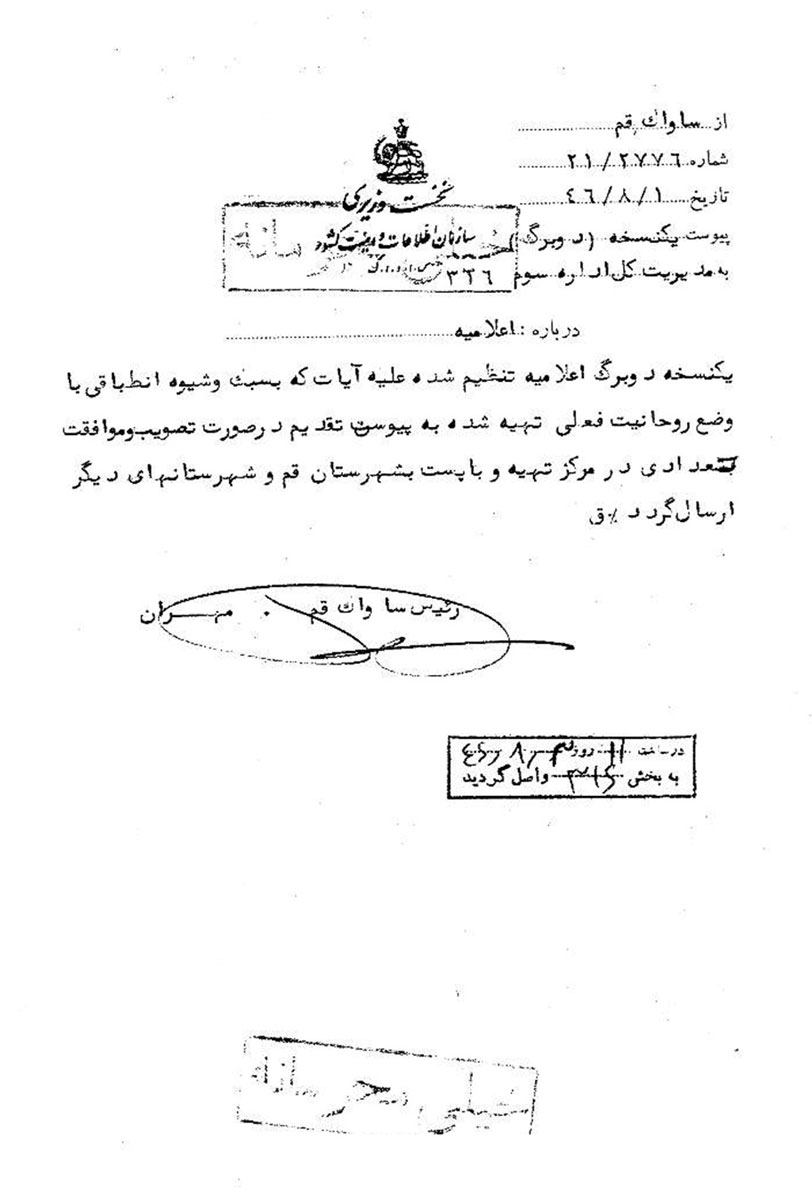 از ساواک قم
شماره ۲۱/۲۷۷٦
تاریخ ٤٦/۸/۱
پیوست یکنسخه (دوبرگ)
به مدیریت کل اداره سوم ۳۲٦
نخست وزیری
سازمان اطلاعات و امنیت کشور
درباره : اعلامیه
یکنسخه دوبرگ اعلامیه تنظیم شده علیه آیات که بسبک وشیوه انطباقی با
وضع روحانیت فعلی تهیه شده به پیوست تقدیم درصورت تصویب وموافقت
بتعدادی در مرکز تهیه و باپست بشهرستان قم و شهرستانهای دیگر
ارسال گردد ٪ق
رئیس ساواک قم . مهران
ساعت ۱۱ روز
به بخش ۳۱٦ واصل گردید
خیلی محرمانه